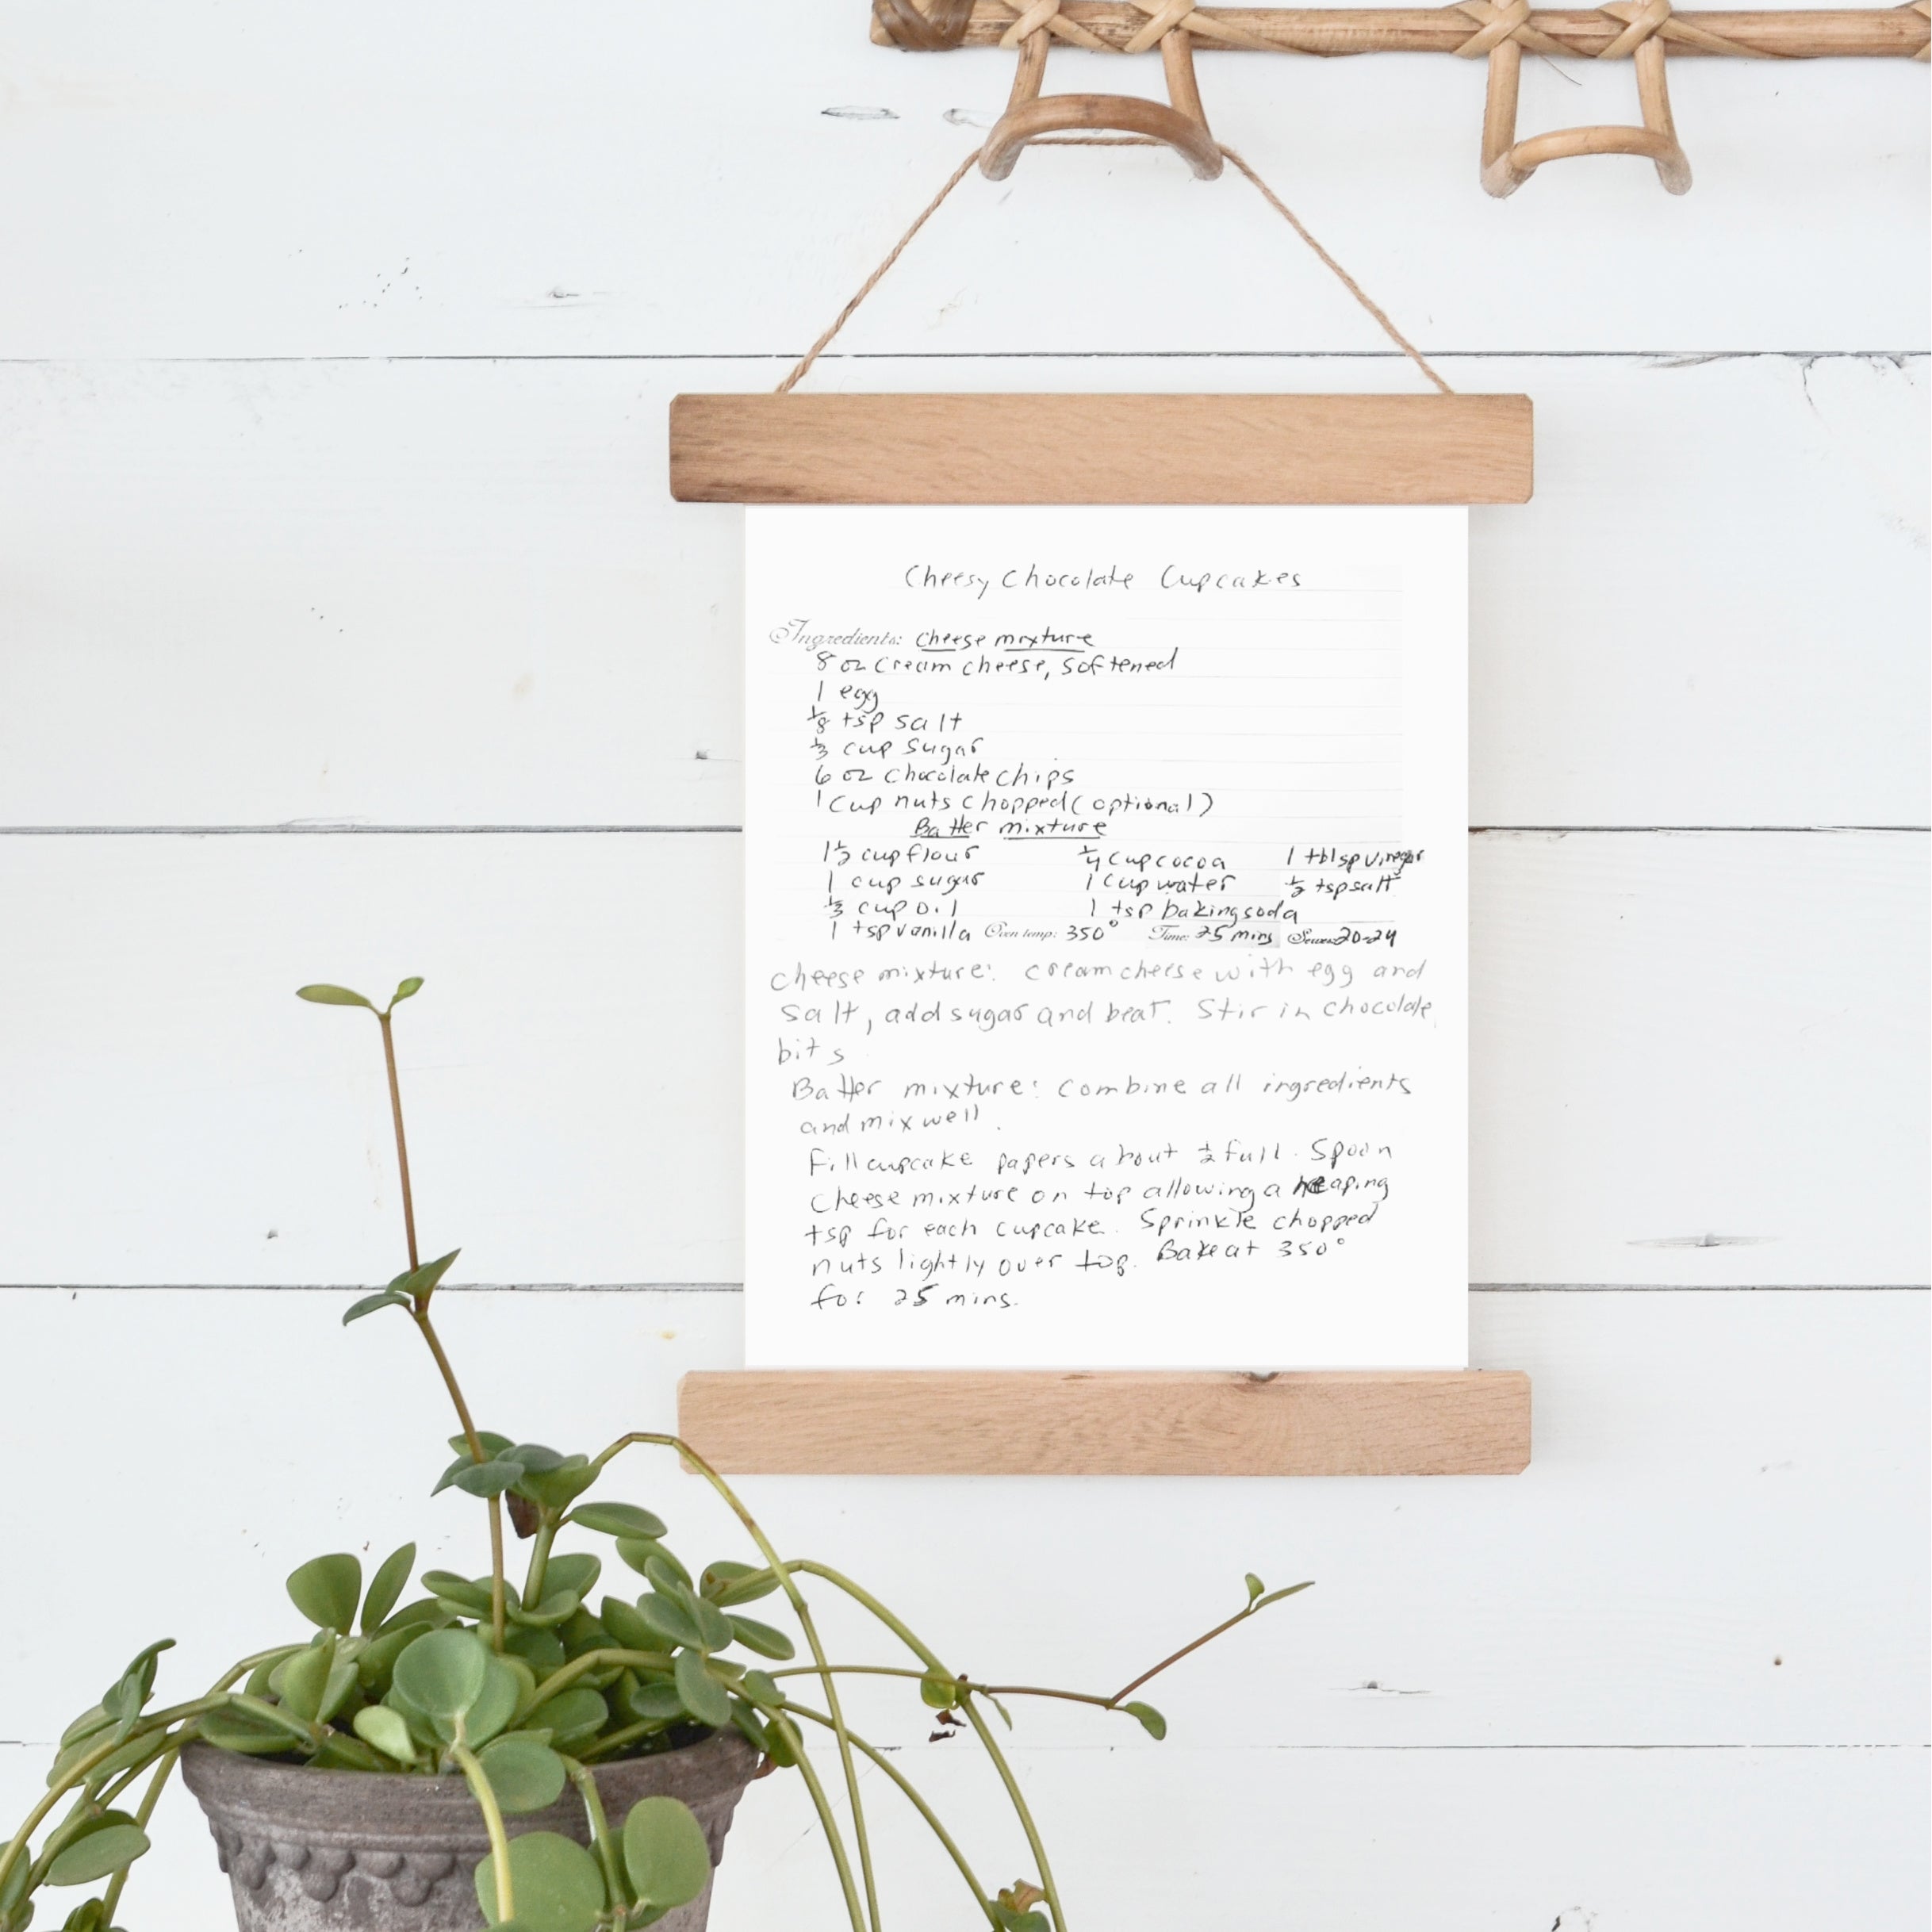 Cheesy Chocolate Cupcakes
Ingredients: Cheese mixture
8 oz cream cheese, softened
1 egg
1/8 tsp salt
1/3 cup sugar
6 oz chocolate chips
1 cup nuts chopped (optional)
Batter mixture
1 1/2 cup flour 1/4 cup cocoa 1 tblsp vinegar
1 cup sugar 1 cup water 1/2 tsp salt
1/3 cup oil 1 tsp baking soda
1 tsp vanilla Oven temp: 350° Time: 25 mins Serves: 20-24
Cheese mixture: cream cheese with egg and
salt, add sugar and beat. Stir in chocolate
bits
Batter mixture: Combine all ingredients
and mix well.
Fill cupcake papers about 1/2 full. Spoon
cheese mixture on top allowing a heaping
tsp for each cupcake. Sprinkle chopped
nuts lightly over top. Bake at 350°
for 25 mins.